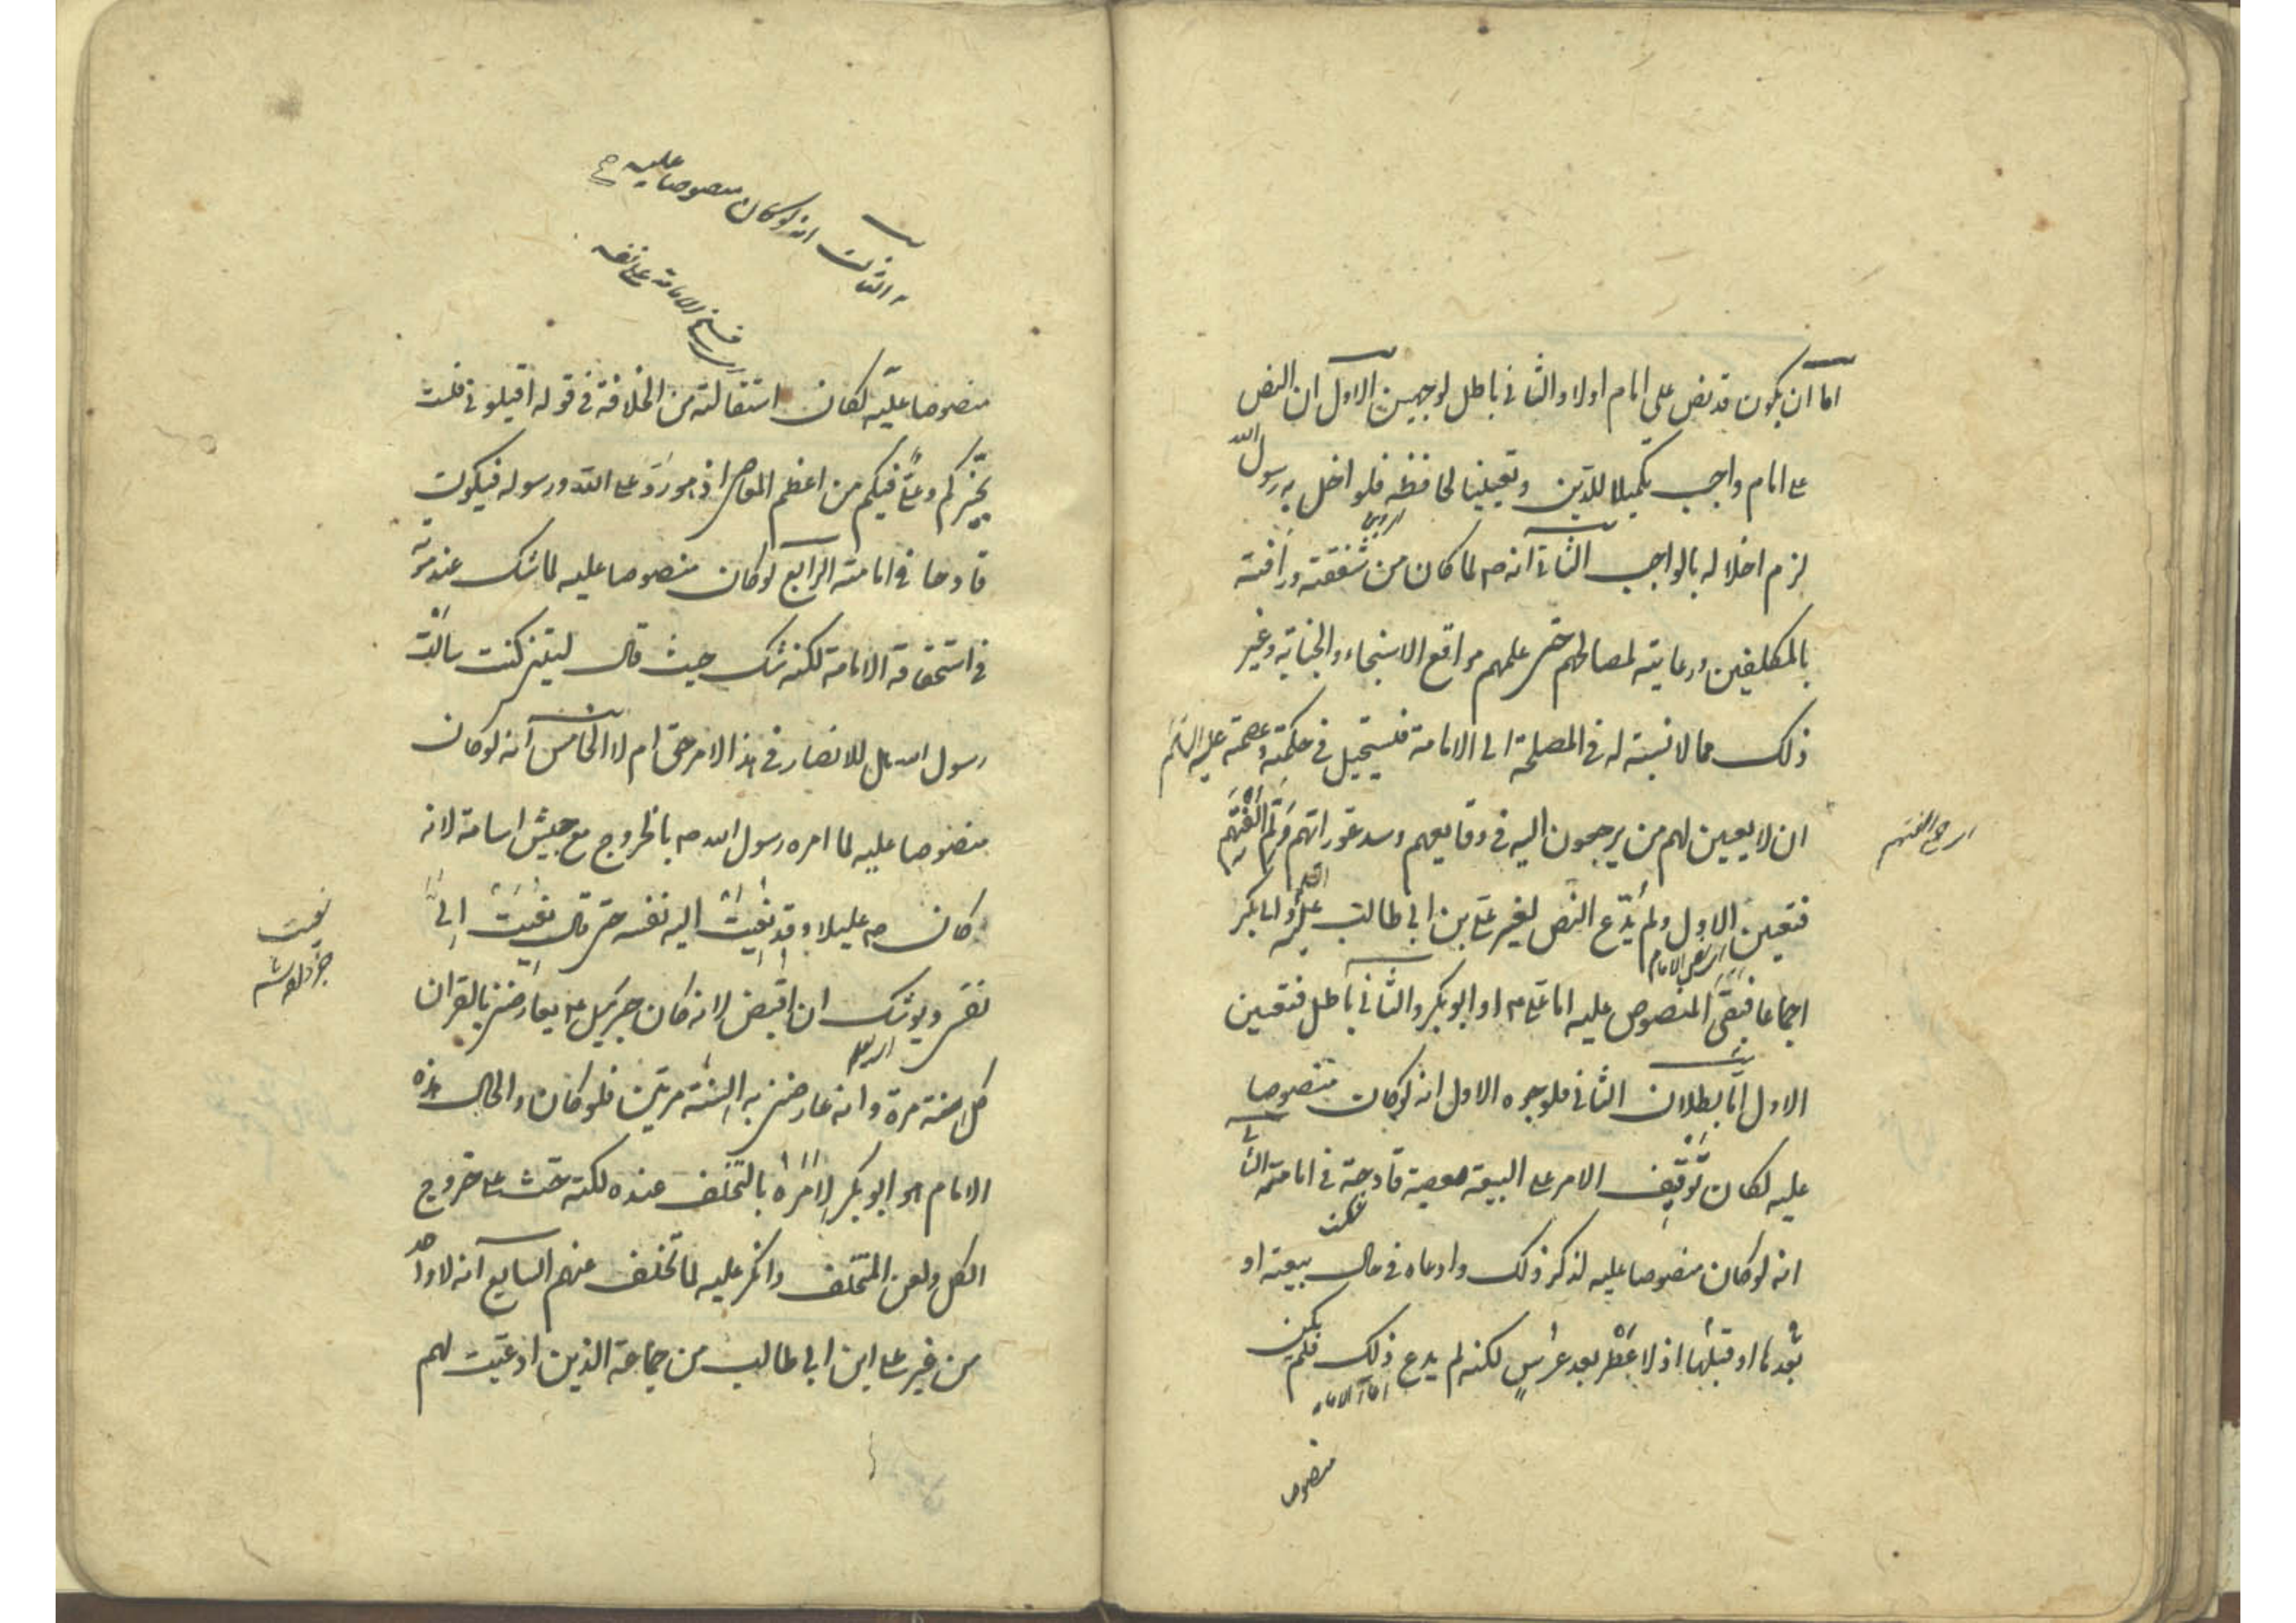 اما ان يكون قد نص على امام اولا والثانى باطل لوجهين الاول ان النص
على امام واجب تكميلا للدين وتعيينا لحافظه فلو اخل به رسول الله
لزم اخلاله بالواجب الثانى انه ص لما كان من شفقته ورأفته
بالمكلفين ورعايته لمصالحهم حتى علمهم مواقع الاستنجاء والجنابة وغير
ذلك مما لا نسبة له فى المصلحة الى الامامة فيستحيل فى حكمته وعصمته عليه السلم
ان لا يعين لهم من يرجعون اليه فى وقايعهم وسد عوراتهم ولم شعثهم
فتعين الاول ولم يدع النص لغير على بن ابى طالب عليه وابى بكر
اجماعا فبقى المنصوص عليه اما على ع او ابو بكر والثانى باطل فتعين
الاول اما بطلان الثانى فلوجوه الاول انه لو كان منصوصا
عليه لكان توقيف الامر على البيعة معصية قادحة فى امامته الثانى
انه لو كان منصوصا عليه لذكر ذلك وادعاه فى حال بيعته او
بعدها او قبلها اذ لا عطر بعد عرس لكنه لم يدع ذلك فلم يكن
منصوصا
الثالث انه لو كان منصوصا عليه
منصوصا عليه لكان استقالته من الخلافة فى قوله اقيلونى فلست
بخيركم وعلى فيكم من اعظم المعاصى اذ هو رد على الله ورسوله فيكون
قادحا فى امامته الرابع لو كان منصوصا عليه لما شك عند موته
فى استحقاقه الامامة لكنه شك حيث قال ليتنى كنت سالت
رسول الله هل للانصار فى هذا الامر حق ام لا الخامس انه لو كان
منصوصا عليه لما امره رسول الله ص بالخروج مع جيش اسامة لانه
كان ص عليلا وقد نعيت اليه نفسه حتى قال نعيت الى
نفسى ويوشك ان اقبض لانه كان جبرئيل ع يعارضنى بالقران
كل سنة مرة وانه عارضنى به السنة مرتين فلو كان والحال هذه
الامام هو ابو بكر لامره بالتخلف عنده لكنه حث على خروج
الكل ولعن المتخلف وانكر عليه لما تخلف عنهم السابع انه لا واحد
من غير على ابن ابى طالب من جماعة الذين ادعيت لهم